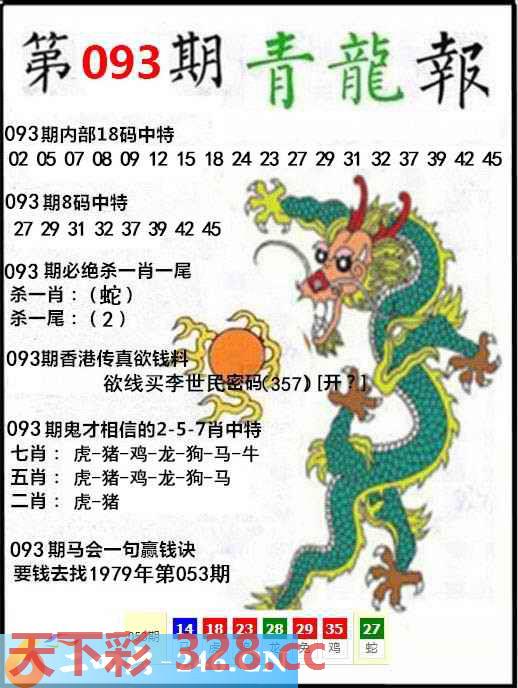 第093期 青龍報
093期内部18码中特
02 05 07 08 09 12 15 18 24 23 27 29 31 32 37 39 42 45
093期8码中特
27 29 31 32 37 39 42 45
093 期必绝杀一肖一尾
杀一肖：（蛇）
杀一尾：（2）
093期香港传真欲钱料
欲线买李世民密码(357)[开？]
093期鬼才相信的2-5-7肖中特
七肖： 虎-猪-鸡-龙-狗-马-牛
五肖： 虎-猪-鸡-龙-狗-马
二肖： 虎-猪
093期马会一句赢钱诀
要钱去找1979年第053期
14 18 23 28 29 35 27
龙 鸡 蛇
天下彩-328.cc